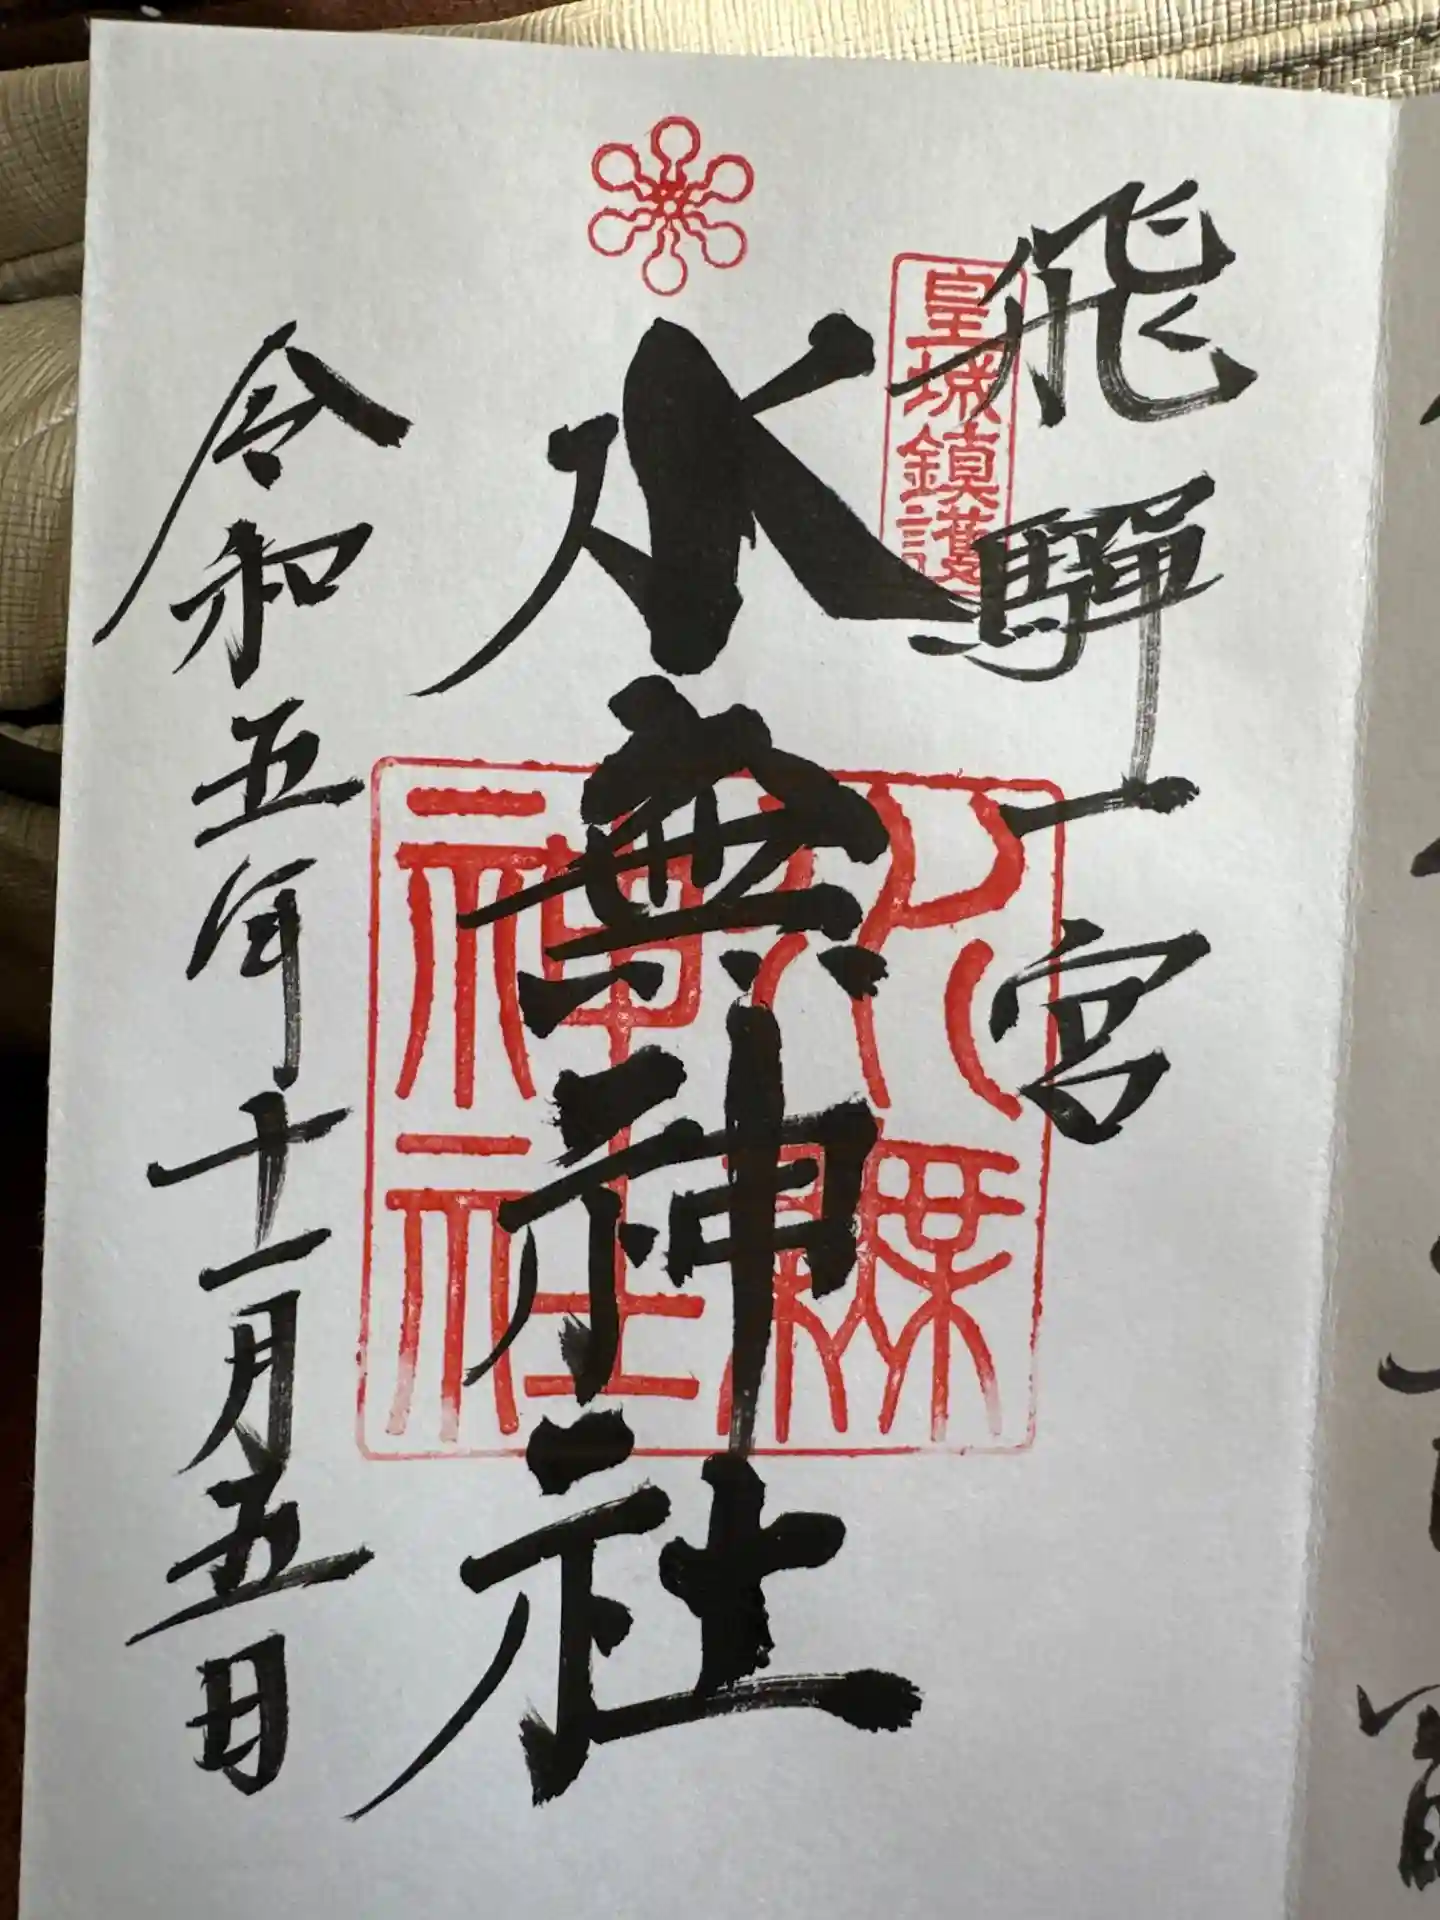 飛騨一宮
皇城鎮護
水無神社
水無神社
令和五年十一月五日